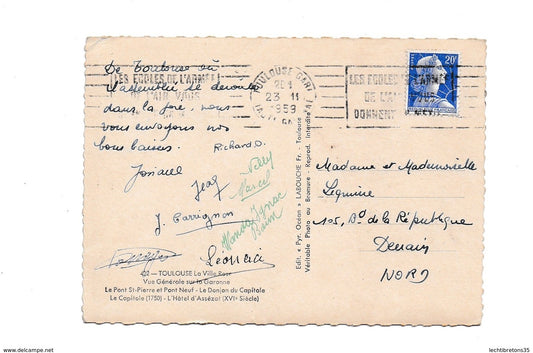 De Toulouse où
l'assemblée se déroule
dans la joie, nous
vous envoyons nos
bons baisers. Richard.D.
Josiane
Jean
Nelly
Marcel
J. Carrignon
Wanda Ignac
Léonski
402 — TOULOUSE La Ville Rose
Vue Générale sur la Garonne
Le Pont St-Pierre et Pont Neuf - Le Donjon du Capitole
Le Capitole (1750) - L'Hôtel d'Assézat (XVIe Siècle)
Edit. « Pyr. Océan » LABOUCHE Fr. - Toulouse
Véritable Photo au Bromure - Reprod. Interdite
TOULOUSE GARE
23 11
1959
LES ECOLES DE L'ARMÉE
DE L'AIR VOUS
LES ECOLES DE L'ARMÉE
DE L'AIR VOUS
DONNENT
20F
Madame et Mademoiselle
Lequine
105, Bd de la République
Denain
NORD
www.delcampe.net
lechtibretons35